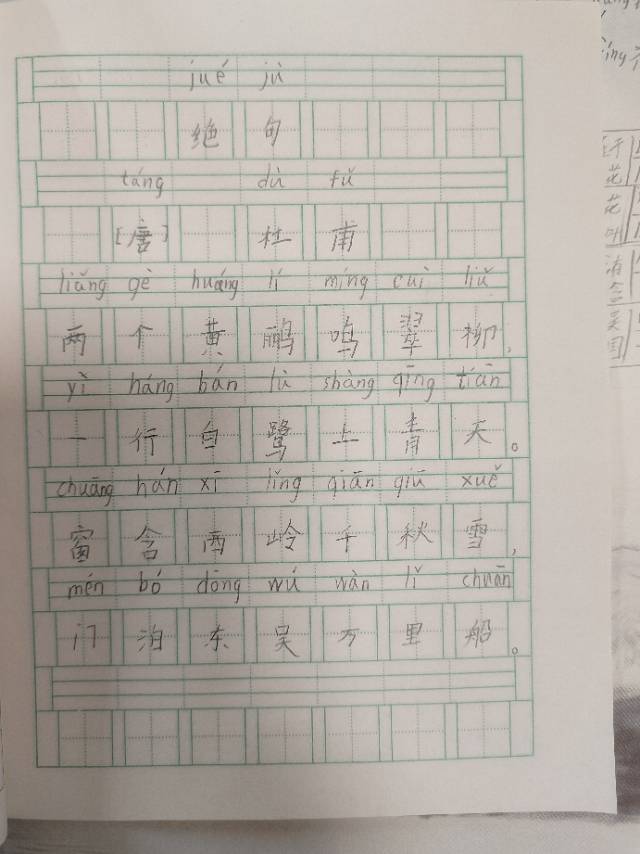 jué jù
绝 句
táng dù fǔ
[唐] 杜 甫
liǎng gè huáng lí míng cuì liǔ
两 个 黄 鹂 鸣 翠 柳,
yì háng bán lù shàng qīng tiān
一 行 白 鹭 上 青 天。
chuāng hán xī lǐng qiān qiū xuě
窗 含 西 岭 千 秋 雪,
mén bó dōng wú wàn lǐ chuān
门 泊 东 吴 万 里 船。